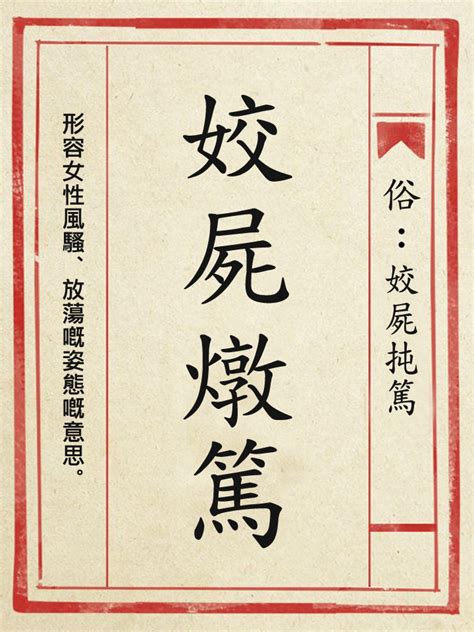 俗：姣屍扽篤
姣屍燉篤
形容女性風騷、放蕩嘅姿態嘅意思。